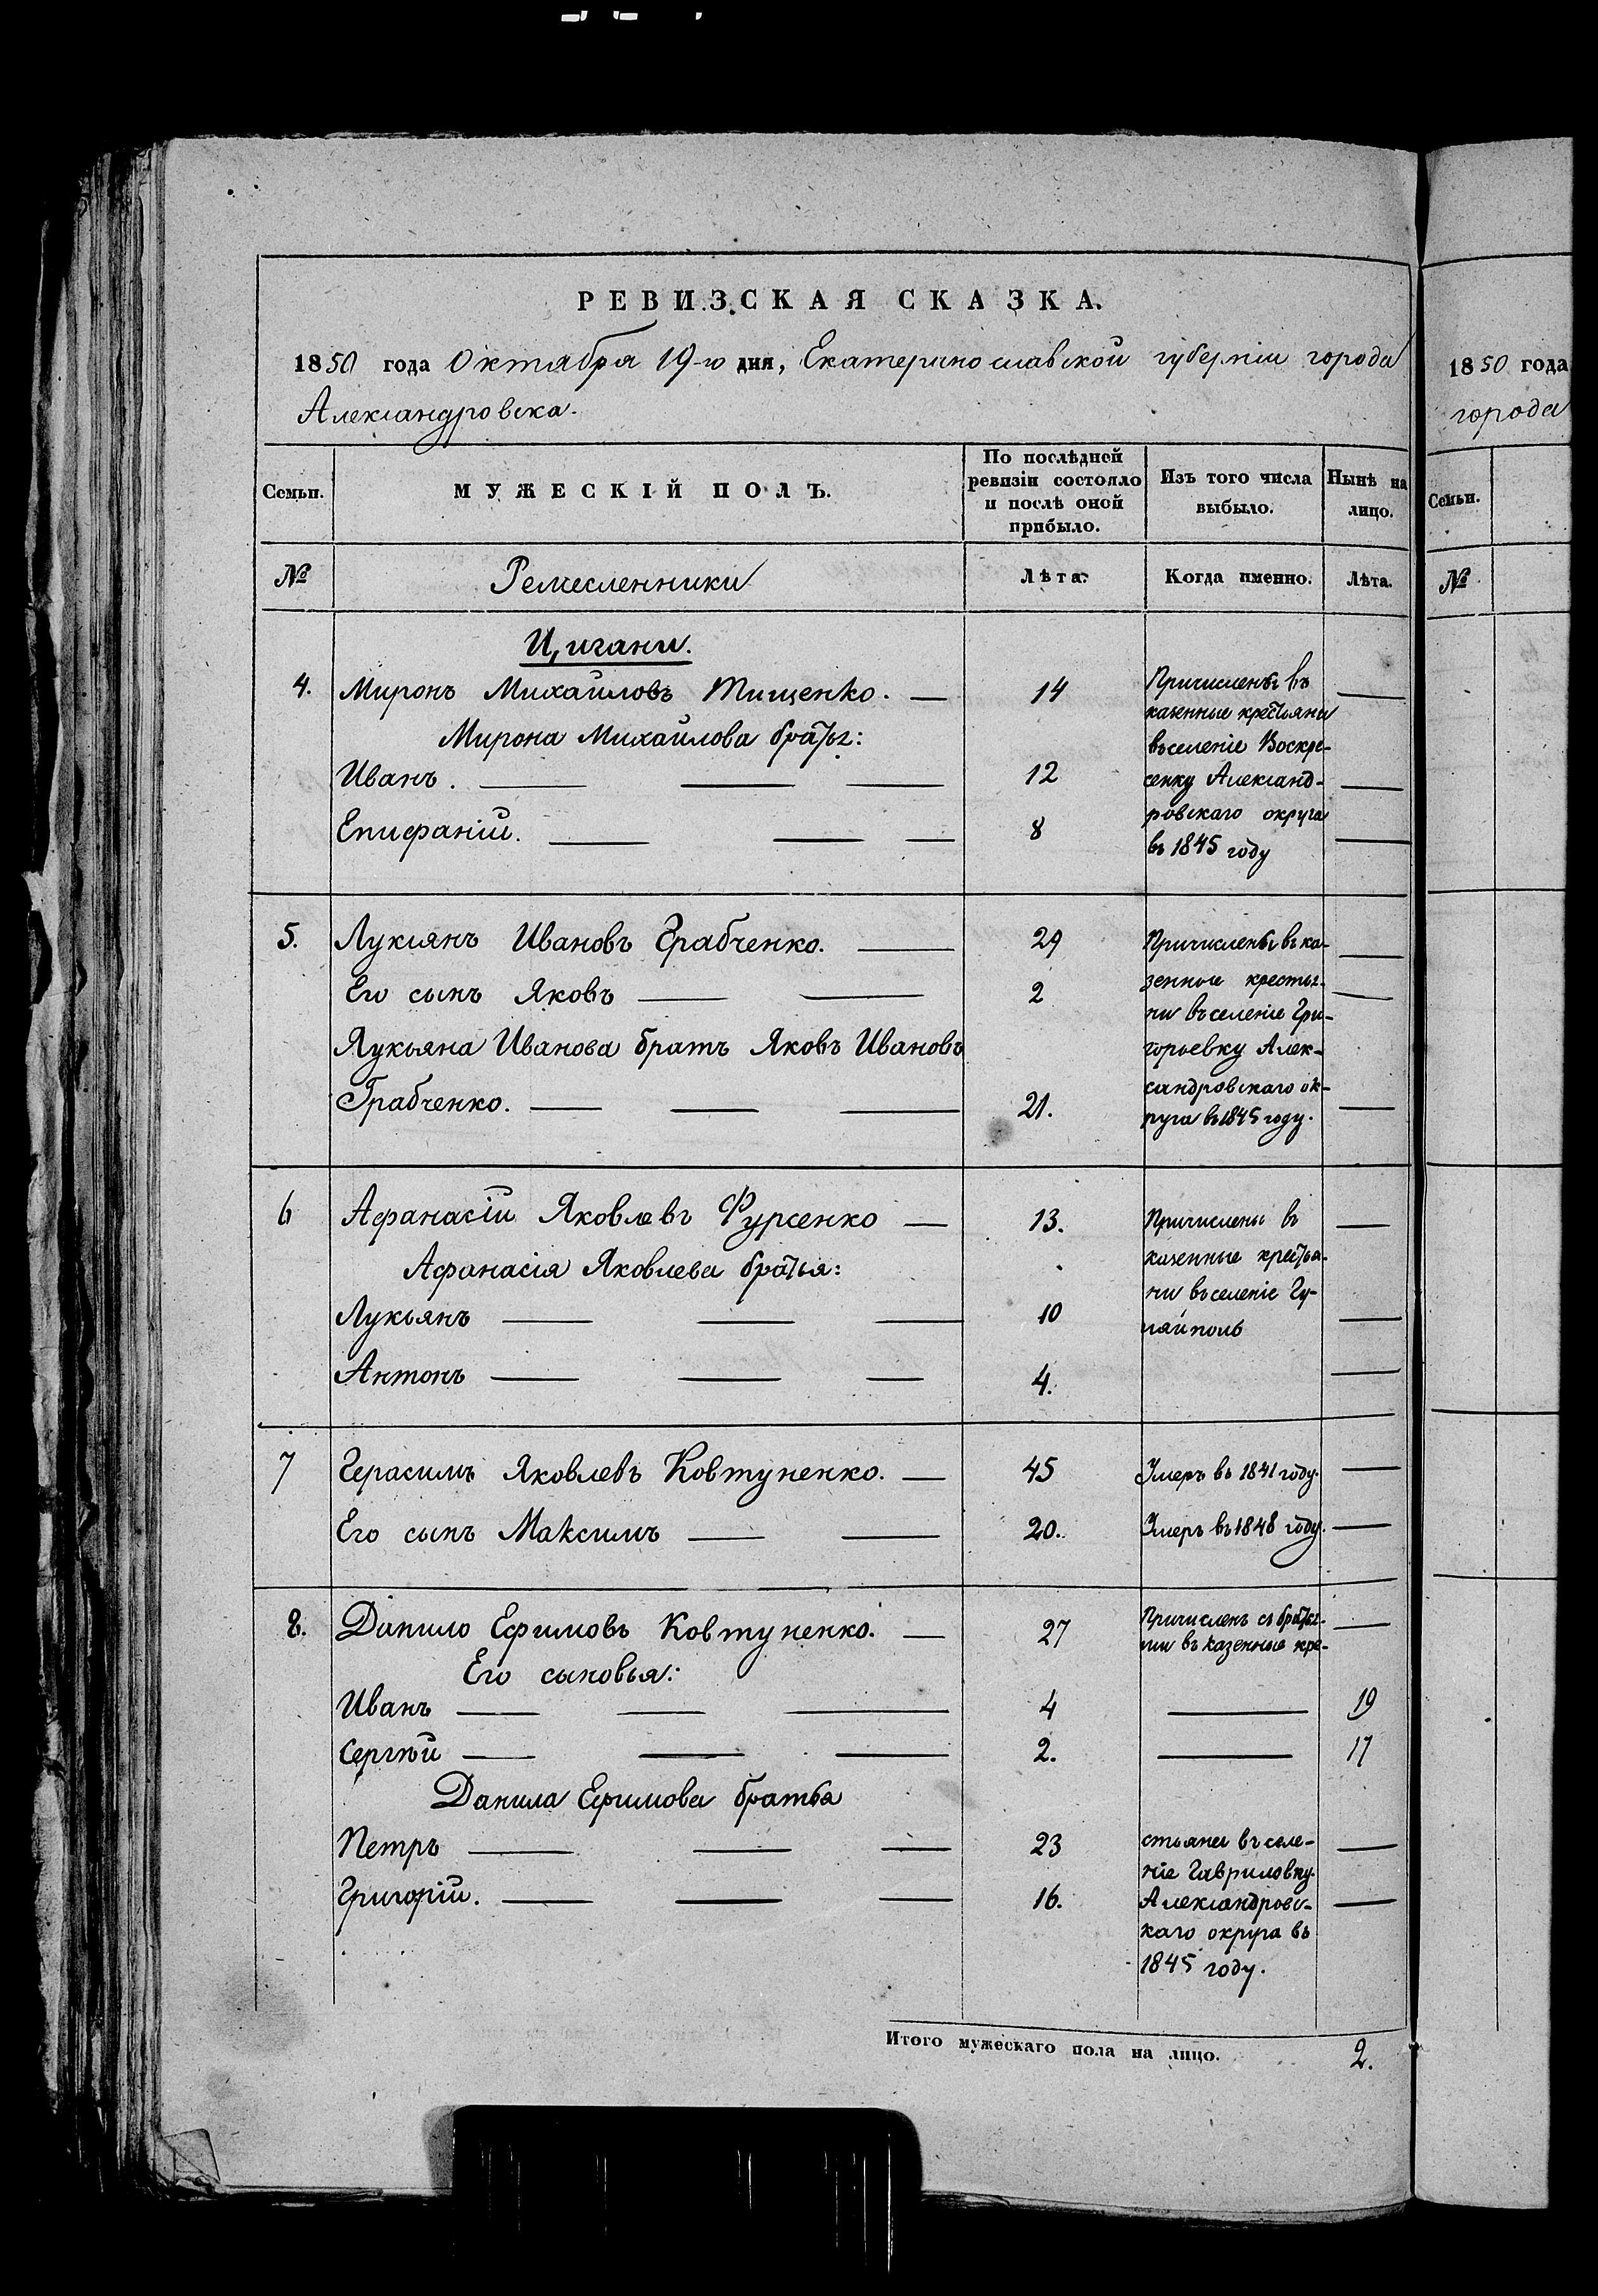 РЕВИЗСКАЯ СКАЗКА.
1850 года Октября 19-го дня, Екатеринославской губерніи города
Александровска.
Семьи.
МУЖЕСКІЙ ПОЛЪ.
По послѣдней
ревизіи состояло
и послѣ оной
прибыло.
Изъ того числа
выбыло.
Нынѣ на
лицо.
№
Ремесленники
Лѣта.
Когда именно.
Лѣта.
Цигани.
4. Миронъ Михайловъ Тищенко. — 14 —
Мирона Михайлова братья:
Иванъ. — — — 12 —
Епифаній. — — — 8 —
Причислены въ
казенные крестьяни
въ селеніе Воскре-
сенку Александ-
ровскаго округа
въ 1845 году
5. Лукіянъ Ивановъ Грабченко. — 29 —
Его сынъ Яковъ — — 2 —
Лукьяна Иванова братъ Яковъ Ивановъ
Грабченко. — — — 21. —
Причислены въ ка-
зенные крестья-
ни въ селеніе Гри-
горьевку Алек-
сандровскаго ок-
руга въ 1845 году.
6 Афанасій Яковлевъ Фурсенко — 13. —
Афанасія Яковлева братья:
Лукьянъ — — — 10 —
Антонъ — — — 4. —
Причислены въ
казенные крестья-
ни въ селеніе Гу-
ляйполь
7 Герасимъ Яковлевъ Ковтуненко. — 45 Умеръ въ 1841 году. —
Его сынъ Максимъ — — 20. Умеръ въ 1848 году. —
8. Данило Ефимовъ Ковтуненко. — 27 —
Причисленъ съ братья-
ми въ казенные кре-
Его сыновья:
Иванъ — — — 4 — 19
Сергѣй — — — 2. — 17
Данила Ефимова братья
Петръ — — — 23 —
Григорій. — — — 16. —
стьяни въ селе-
ніе Гавриловку
Александровс-
каго округа въ
1845 году.
Итого мужескаго пола на лицо. 2.
1850 года
города
Семьи.
№